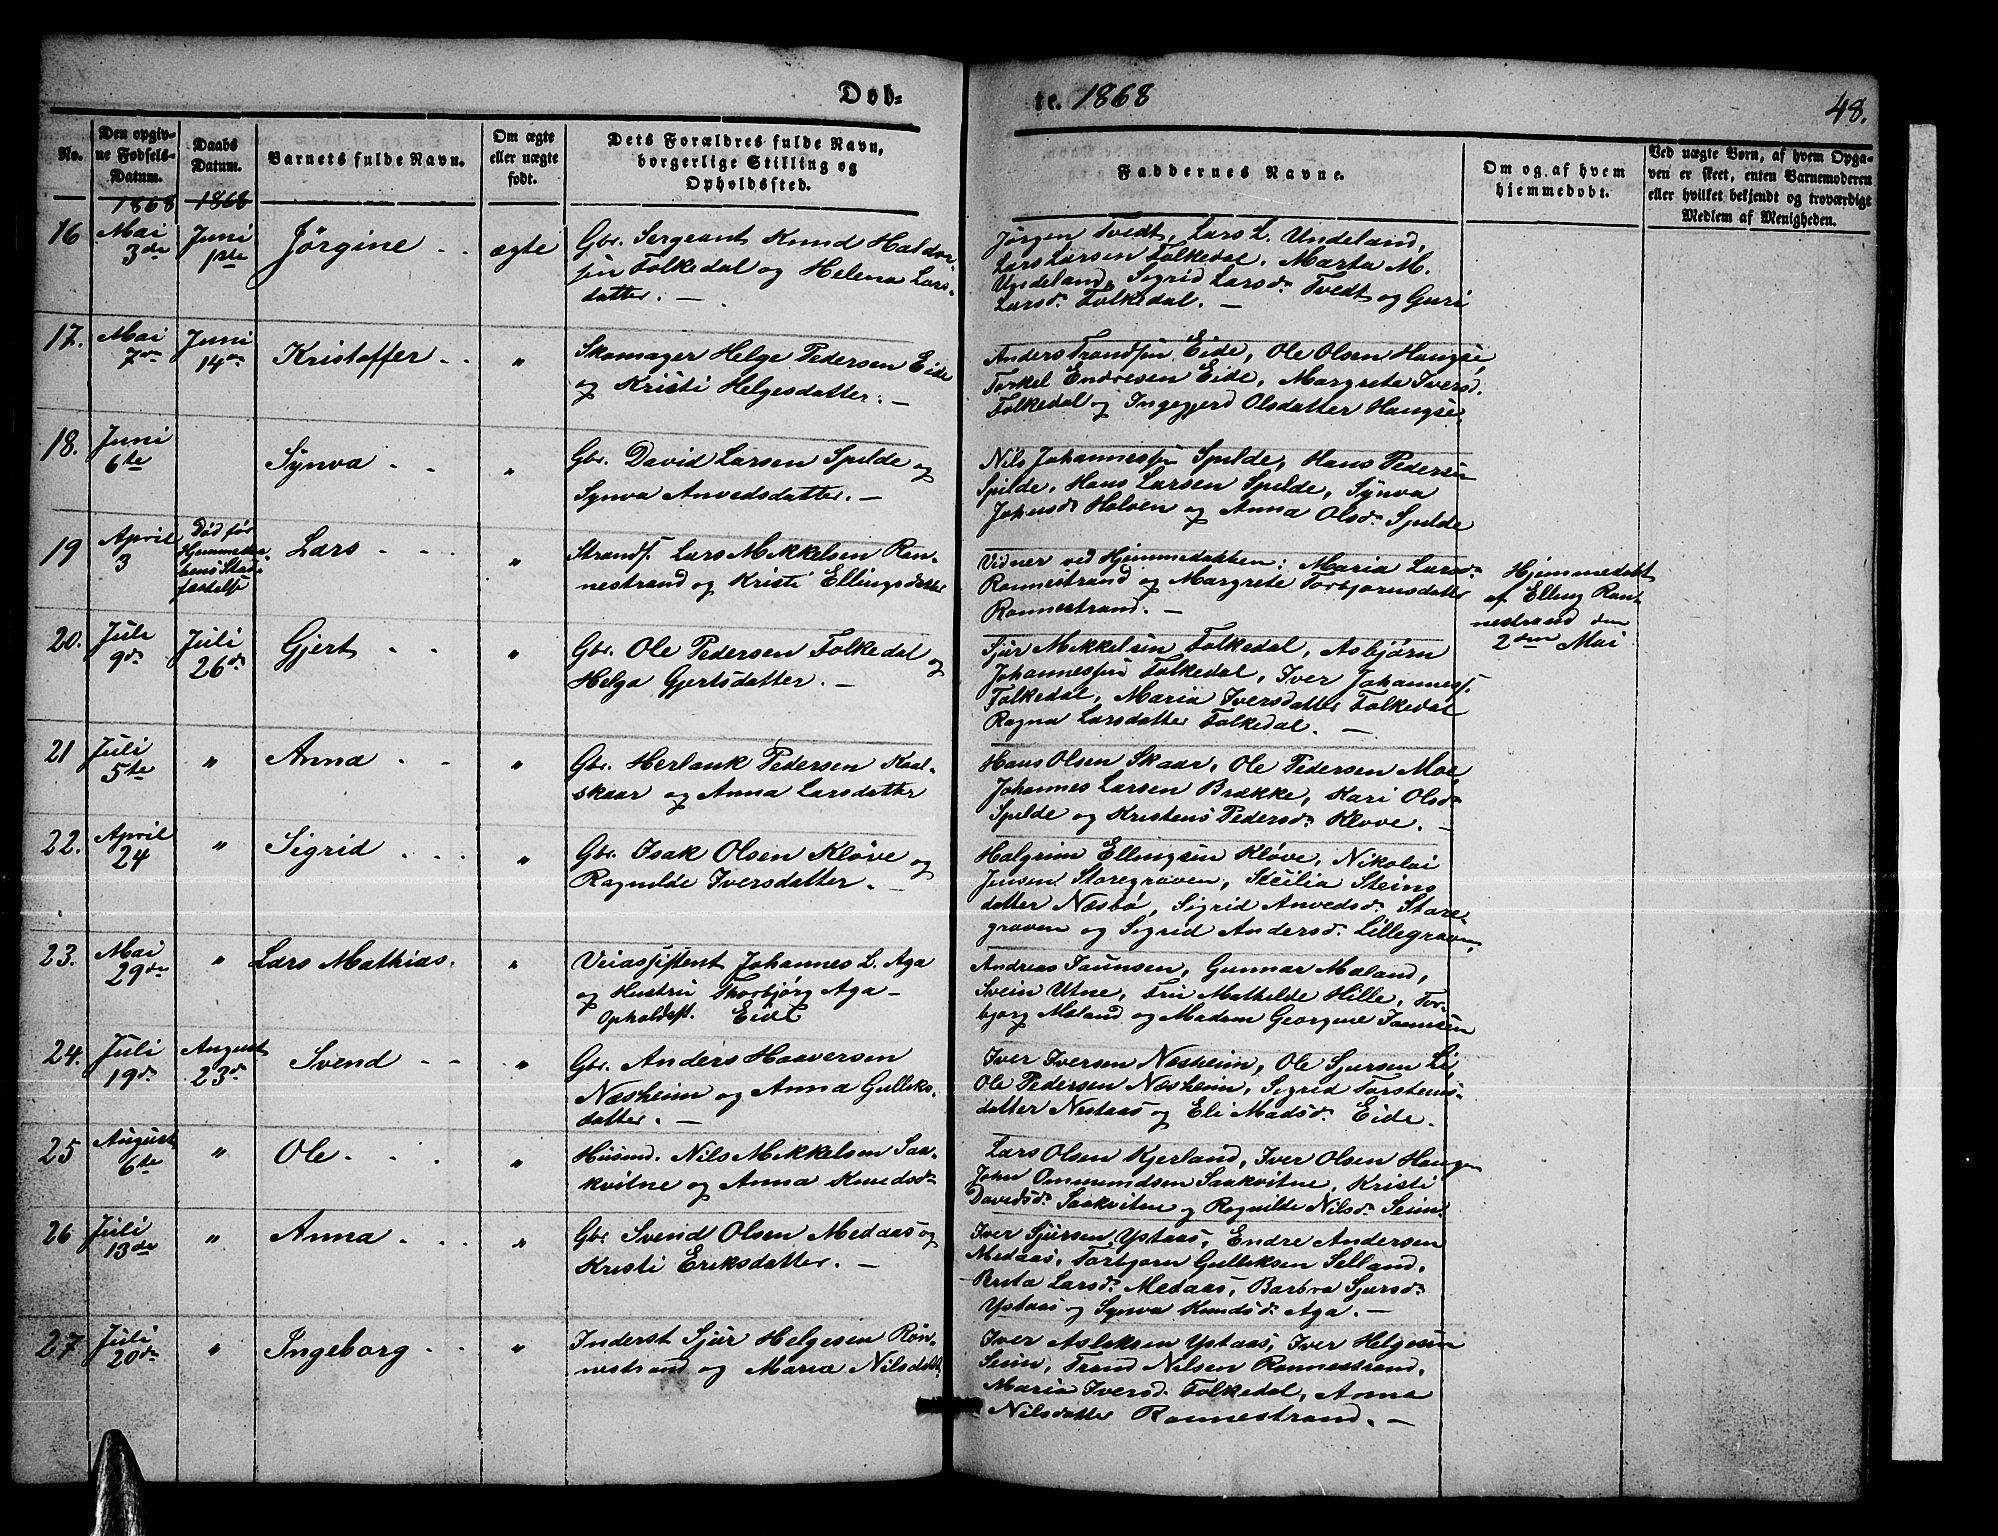 Døb-
te. 1868
48.
No.
Den opgiv-
ne Fødsels-
Datum.
Daabs
Datum.
Barnets fulde Navn.
Om ægte
eller uægte
født.
Dets Forældres fulde Navn,
borgerlige Stilling og
Opholdssted.
Faddernes Navne.
Om og af hvem
hjemmedøbt.
Ved uægte Børn, af hvem Opga-
ven er skeet, enten Barnemoderen
eller hvilket bekjendt og troværdigt
Medlem af Menigheden.
1868
1868
16
Mai
3de
Juni
1ste
Jørgine
ægte
Gbr. Sergeant Knud Haldor-
sen Folkedal og Helena Lars-
datter. —
Jørgen Tvedt, Lars L. Undeland,
Lars Larsen Folkedal, Marta M.
Undeland, Sigrid Larsd. Tvedt og Guri
Larsd. Folkedal. —
17.
Mai
7de
Juni
14de
Kristoffer
"
Skomager Helge Pedersen Eide
og Kristi Helgesdatter. —
Anders Trondsen Eide, Ole Olsen Haugse,
Torkel Endresen Eide, Margrete Iversd.
Folkedal og Ingegjerd Olsdatter Haugse,
18.
Juni
6te
Synva
"
Gbr. David Larsen Spilde og
Synva Anvedsdatter. —
Nils Johannessen Spilde, Hans Pedersen
Spilde, Hans Larsen Spilde, Synva
Johnsd. Holven og Anna Olsd. Spilde
19
April
3
Død før
Hjemmedaa-
bens Stad-
fæstelse
Lars
"
Strands. Lars Mikkelsen Ran-
nestrand og Kristi Ellingsdatter
Vidner ved Hjemmedaaben: Maria Larsd.
Rannestrand og Margrete Torbjørnsdatter
Rannestrand. —
Hjemmedøbt
af Elling Ran-
nestrand den
2den Mai
20.
Juli
9de
Juli
26de
Gjert
"
Gbr. Ole Pedersen Folkedal og
Helga Gjertsdatter. —
Sjur Mikkelsen Folkedal, Asbjørn
Johannessen Folkedal, Iver Johanness.
Folkedal, Maria Iversdatter Folkedal
Ragna Larsdatter Folkedal. —
21
Juli
5te
"
Anna
"
Gbr. Herlauk Pedersen Kaal-
skaar og Anna Larsdatter
Hans Olsen Skaar, Ole Pedersen Moe
Johannes Larsen Brække, Kari Olsd.
Spilde og Kristens Pedersd. Kløve. —
22.
April
24
"
Sigrid
"
Gbr. Isak Olsen Kløve og
Ragnilde Iversdatter. —
Halgrim Ellingsen Kløve, Nikolai
Jensen Storegraven, Secilia Steins
datter Næsbø, Sigrid Anvedsd. Store-
graven og Sigrid Andersd. Lillegraven,
23.
Mai
29de
"
Lars Mathias.
"
Veiassistent Johannes L. Aga
og Hustru Thorbjørg Aga —
Opholdsst. Eide
Andreas Jaunsen, Gunnar Mæland,
Svein Utne, Fru Mathilde Hille, Tor-
bjørg Mæland og Madam Georgine Jaunsen
24.
Juli
19de
August
23de
Svend
"
Gbr. Anders Haaversen
Næsheim og Anna Gulleks-
datter. —
Iver Iversen Næsheim, Ole Sjursen Li,
Ole Pedersen Næsheim, Sigrid Torsteins-
datter Nestaas og Eli Madsd. Eide.
25
August
6te
"
Ole
"
Husmd. Nils Mikkelsen Saa-
kvitne og Anna Knudsd.
Lars Olsen Kjerland, Iver Olsen Haugen
John Ommundsen Saakvitne, Kristi
Davidsd. Saakvitne og Ragnilde Nilsd. Seim.
26
Juli
13de
"
Anna
"
Gbr. Svend Olsen Medaas og
Kristi Eriksdatter. —
Iver Sjursen Ystaas, Endre Andersen
Medaas, Torbjørn Gulleksen Selland,
Brita Larsd. Medaas, Barbra Sjursd.
Ystaas og Synva Knudsd. Aga. —
27
Juli
20de
"
Ingeborg
"
Inderst Sjur Helgesen Røn-
nestrand og Maria Nilsdatt.
Iver Aslaksen Ystaas, Iver Helgesen
Seim, Trond Nilsen Rannestrand,
Maria Iversd. Folkedal, Anna
Nilsdatter Rannestrand. —